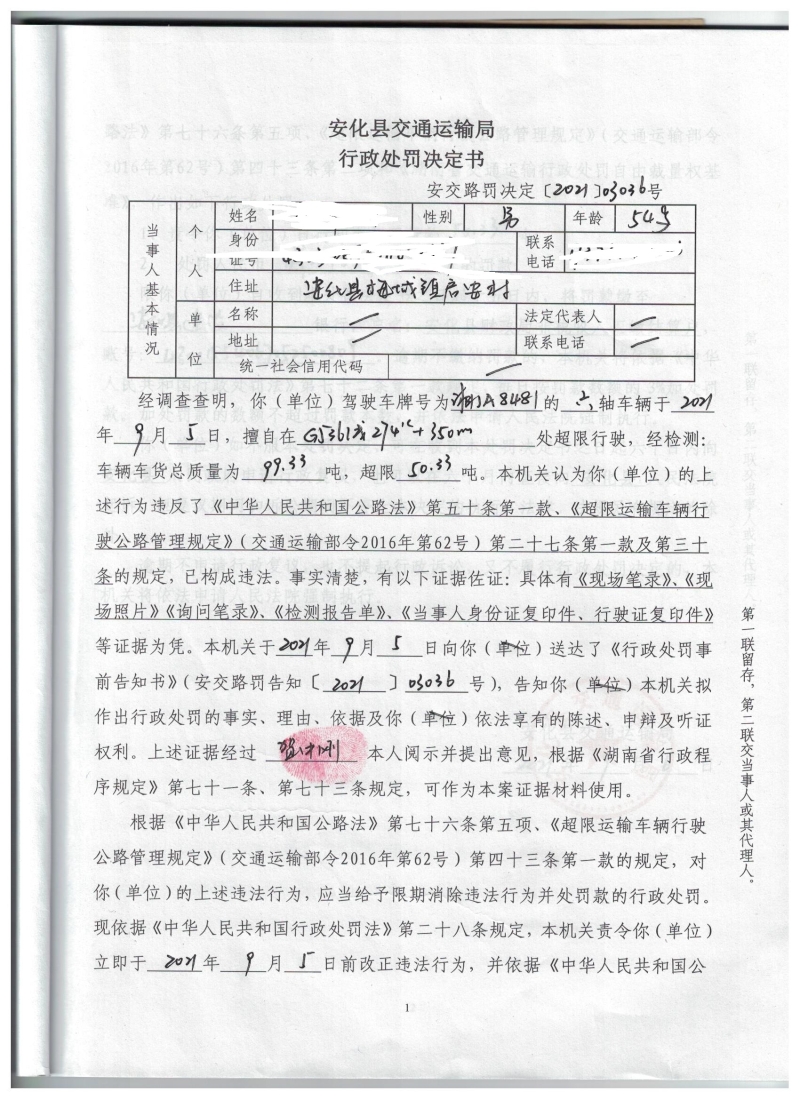 安化县交通运输局
行政处罚决定书
安交路罚决定〔2021〕03036号
当事人基本情况
个人
姓名 性别 男 年龄 54岁
身份证号 联系电话
住址 安化县梅城镇启安村
单位
名称 法定代表人
地址 联系电话
统一社会信用代码
经调查查明，你（单位）驾驶车牌号为湘A8481的 六 轴车辆于 2021
年 9 月 5 日，擅自在 G536线274K+350m 处超限行驶，经检测：
车辆车货总质量为 99.33 吨，超限 50.33 吨。本机关认为你（单位）的上
述行为违反了《中华人民共和国公路法》第五十条第一款、《超限运输车辆行
驶公路管理规定》（交通运输部令2016年第62号）第二十七条第一款及第三十
条的规定，已构成违法。事实清楚，有以下证据佐证：具体有《现场笔录》、《现
场照片》《询问笔录》、《检测报告单》、《当事人身份证复印件、行驶证复印件》
等证据为凭。本机关于2021年 9 月 5 日向你（单位）送达了《行政处罚事
前告知书》（安交路罚告知〔 2021 〕03036 号），告知你（单位）本机关拟
作出行政处罚的事实、理由、依据及你（单位）依法享有的陈述、申辩及听证
权利。上述证据经过 本人阅示并提出意见，根据《湖南省行政程
序规定》第七十一条、第七十三条规定，可作为本案证据材料使用。
根据《中华人民共和国公路法》第七十六条第五项、《超限运输车辆行驶
公路管理规定》（交通运输部令2016年第62号）第四十三条第一款的规定，对
你（单位）的上述违法行为，应当给予限期消除违法行为并处罚款的行政处罚。
现依据《中华人民共和国行政处罚法》第二十八条规定，本机关责令你（单位）
立即于 2021 年 9 月 5 日前改正违法行为，并依据《中华人民共和国公
第一联留存，第二联交当事人或其代理人。
1